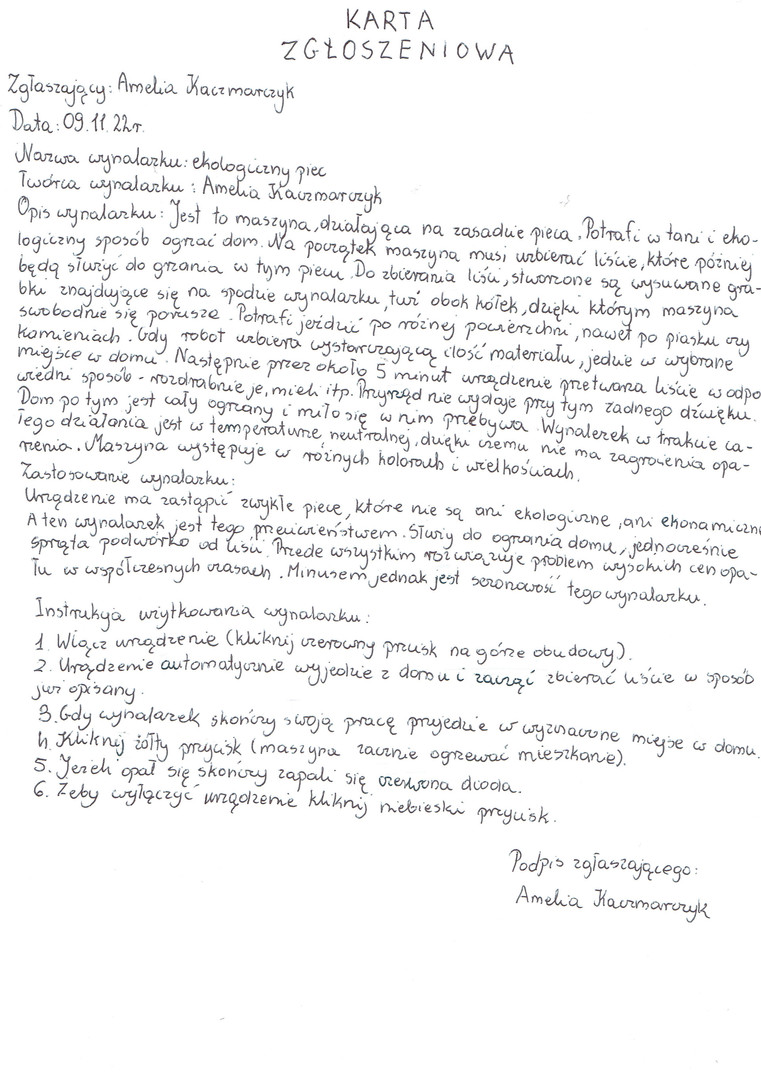 KARTA
ZGŁOSZENIOWA
Zgłaszający: Amelia Kaczmarczyk
Data: 09.11.22r.
Nazwa wynalazku: ekologiczny piec
Twórca wynalazku: Amelia Kaczmarczyk
Opis wynalazku: Jest to maszyna, działająca na zasadzie pieca. Potrafi w tani i eko-
logiczny sposób ogrzać dom. Na początek maszyna musi uzbierać liście, które później
będą służyć do grzania w tym piecu. Do zbierania liści, stworzone są wysuwane gra-
bki znajdujące się na spodzie wynalazku, tuż obok kółek, dzięki którym maszyna
swobodnie się porusza. Potrafi jeździć po różnej powierzchni, nawet po piasku czy
kamieniach. Gdy robot uzbiera wystarczającą ilość materiału, jedzie w wybrane
miejsce w domu. Następnie przez około 5 minut urządzenie przetwarza liście w odpo
wiedni sposób - rozdrabnia je, mieli itp. Przyrząd nie wydaje przy tym żadnego dźwięku.
Dom po tym jest cały ogrzany i miło się w nim przebywa. Wynalezek w trakcie ca-
łego działania jest w temperaturze neutralnej, dzięki czemu nie ma zagrożenia opa-
rzenia. Maszyna występuje w różnych kolorach i wielkościach.
Zastosowanie wynalazku:
Urządzenie ma zastąpić zwykłe piece, które nie są ani ekologiczne, ani ekonamiczne
A ten wynalazek jest tego przeciwieństwem. Służy do ogrzania domu, jednocześnie
sprząta podwórko od liści. Przede wszystkim rozwiązuje problem wysokich cen opa-
łu w współczesnych czasach. Minusem jednak jest sezonowość tego wynalazku.
Instrukcja użytkowania wynalazku:
1. Włącz urządzenie (kliknij czerwony przycisk na górze obudowy).
2. Urządzenie automatycznie wyjedzie z domu i zacznie zbierać liście w sposób
już opisany.
3. Gdy wynalazek skończy swoją pracę przyjedzie w wyznaczone miejsce w domu.
4. Kliknij żółty przycisk (maszyna zacznie ogrzewać mieszkanie).
5. Jeżeli opał się skończy zapali się czerwona dioda.
6. Żeby wyłączyć urządzenie kliknij niebieski przycisk.
Podpis zgłaszającego:
Amelia Kaczmarczyk